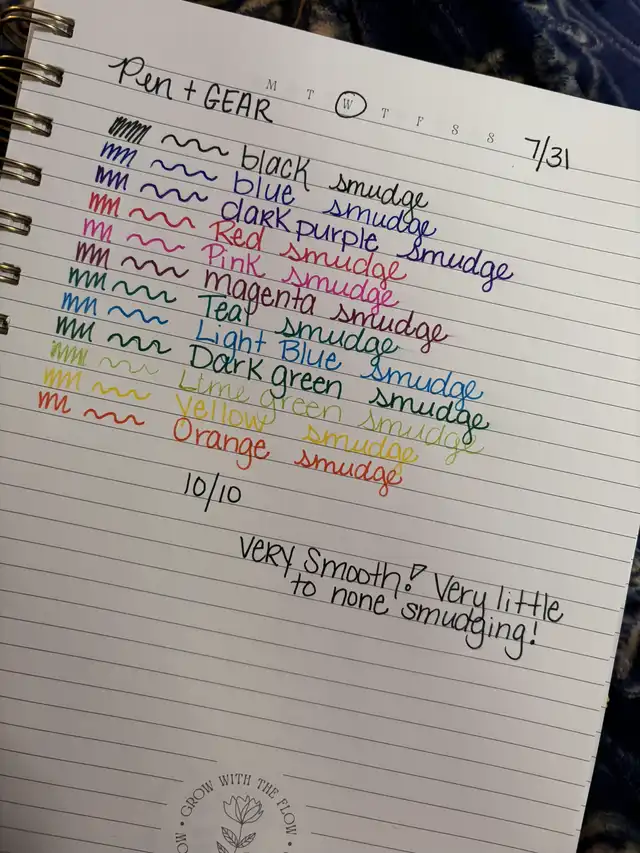 Pen + GEAR
M T W T F S S
7/31
black smudge
blue smudge
dark purple smudge
Red smudge
Pink smudge
magenta smudge
Teal smudge
Light Blue smudge
Dark green smudge
Lime green smudge
Yellow smudge
Orange smudge
10/10
VERY Smooth! Very little
to none smudging!
GROW WITH THE FLOW